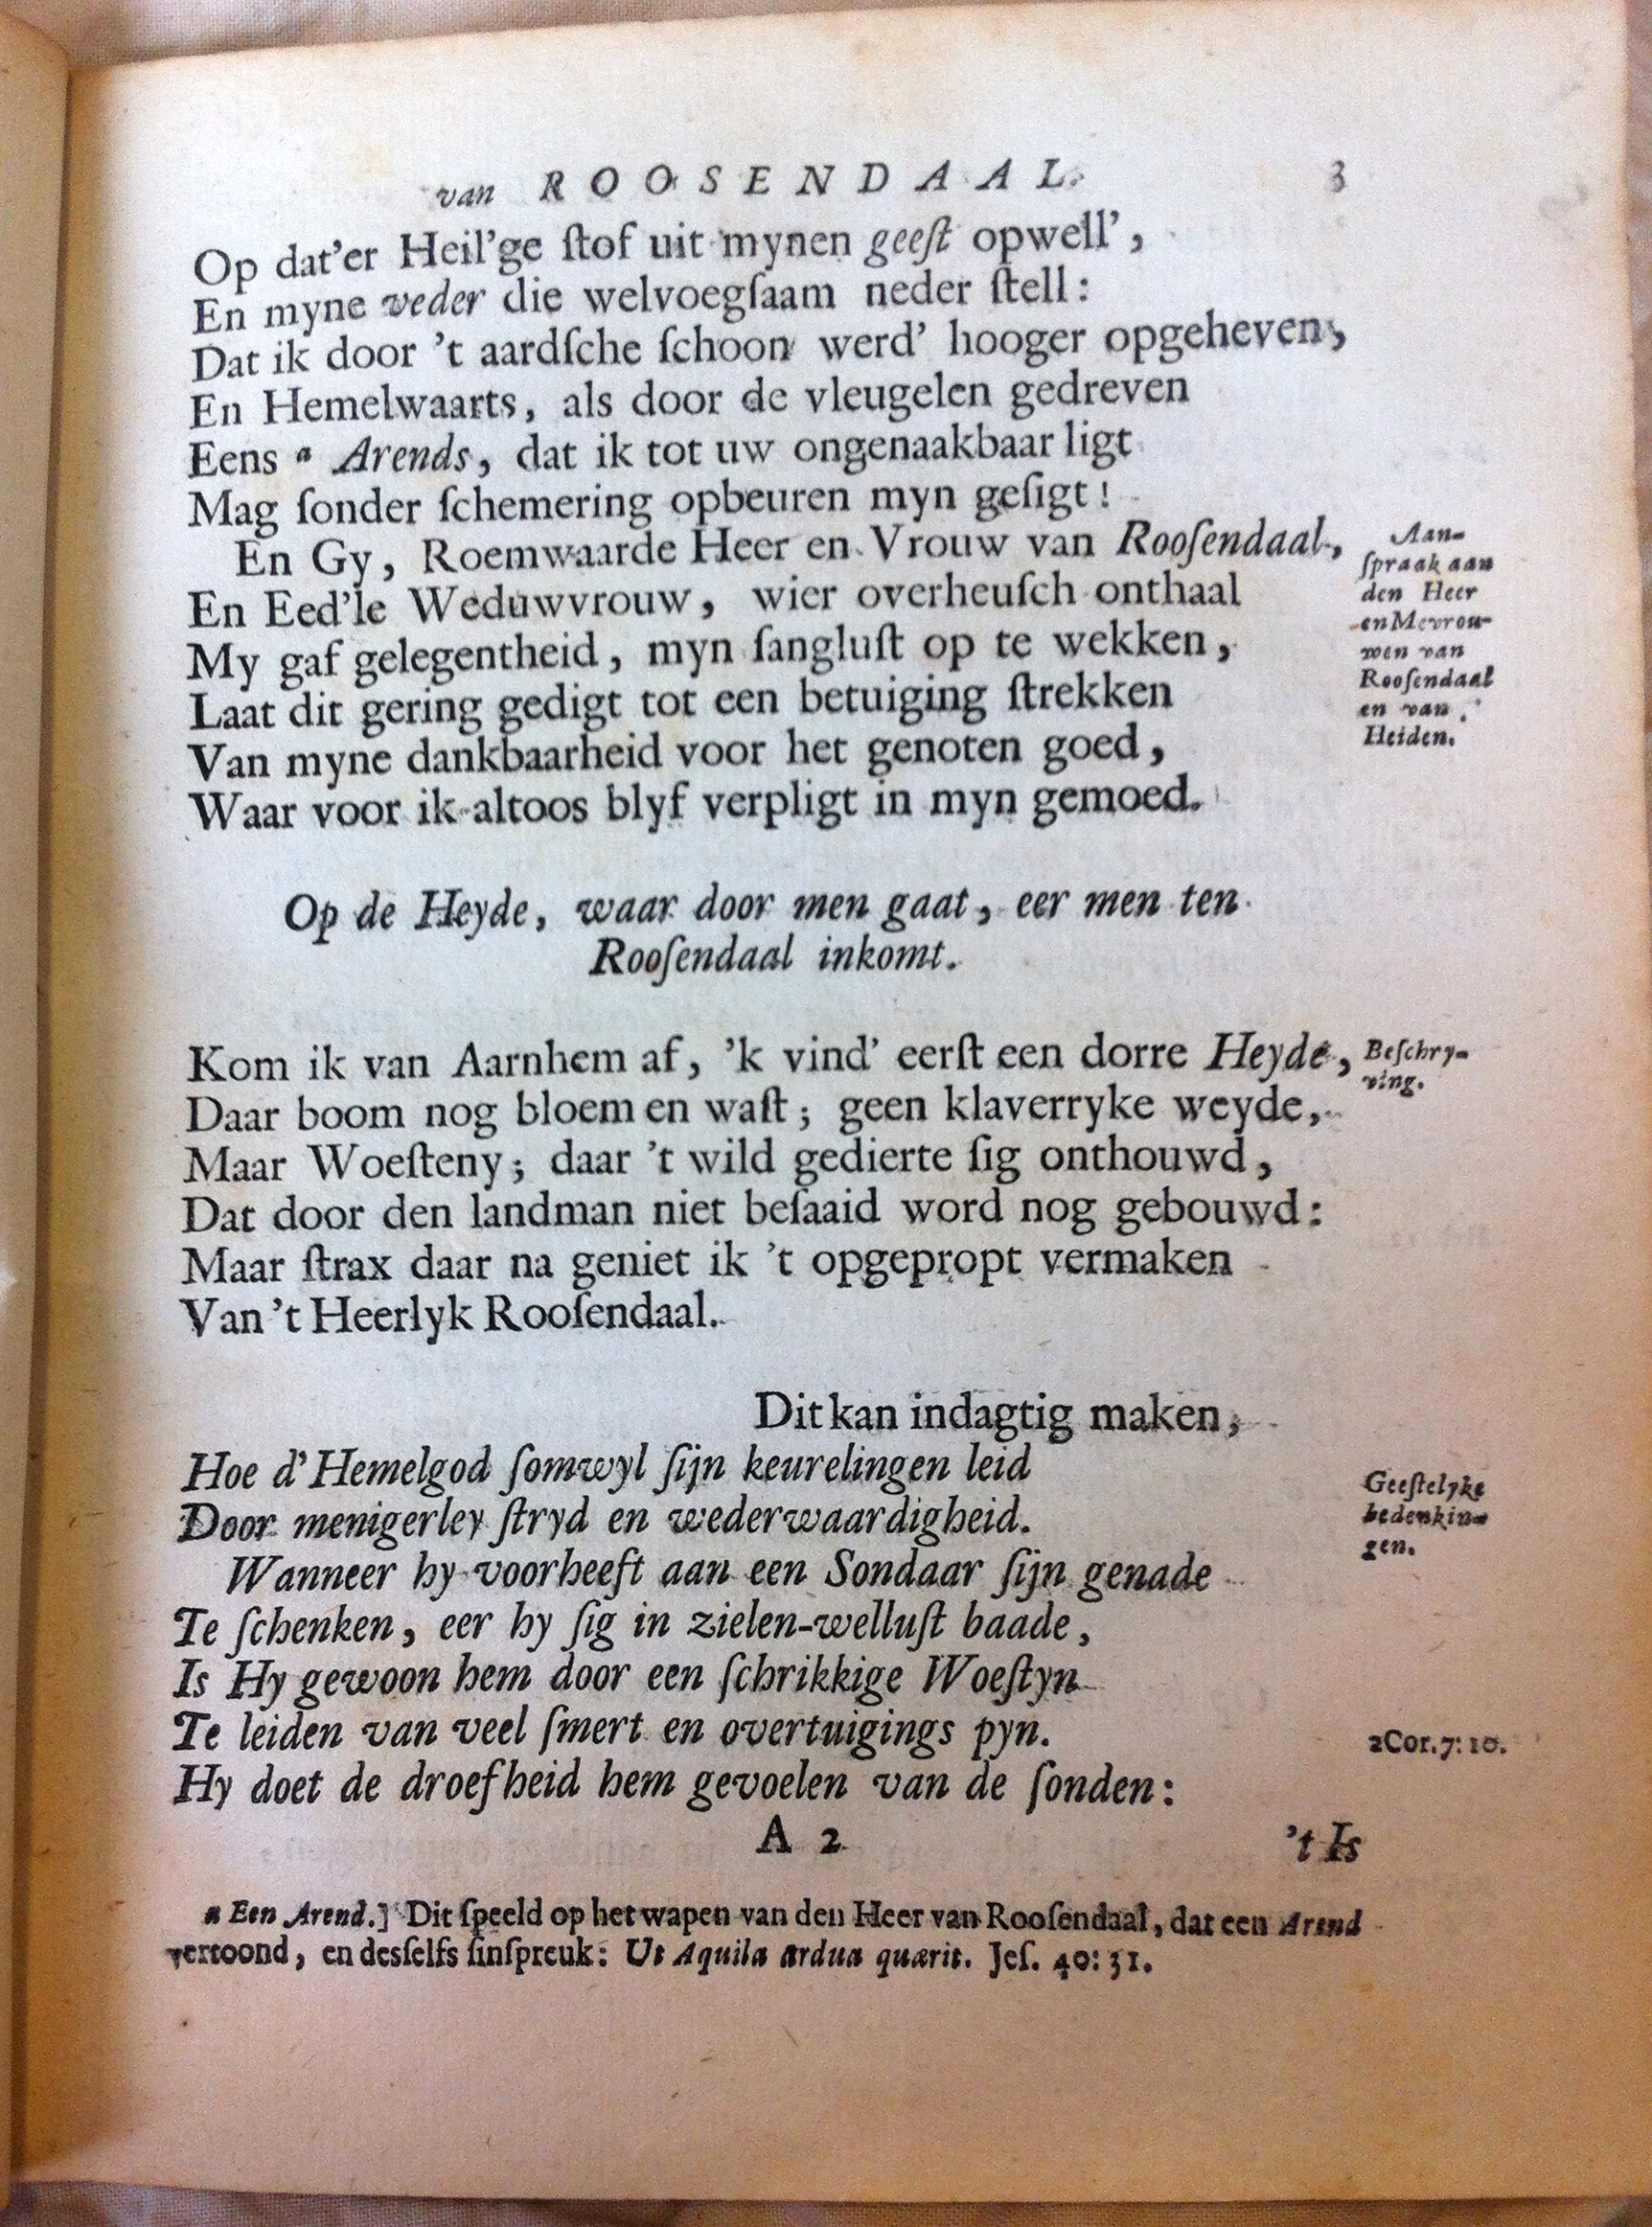 van ROOSENDAAL. 3
Op dat'er Heil'ge ſtof uit mynen geeſt opwell',
En myne veder die welvoegſaam neder ſtell:
Dat ik door 't aardſche ſchoon werd' hooger opgeheven,
En Hemelwaarts, als door de vleugelen gedreven
Eens a Arends, dat ik tot uw ongenaakbaar ligt
Mag ſonder ſchemering opbeuren myn geſigt!
En Gy, Roemwaarde Heer en Vrouw van Rooſendaal,
En Eed'le Weduwvrouw, wier overheuſch onthaal
My gaf gelegentheid, myn ſangluſt op te wekken,
Laat dit gering gedigt tot een betuiging ſtrekken
Van myne dankbaarheid voor het genoten goed,
Waar voor ik altoos blyf verpligt in myn gemoed.
Aan-
ſpraak aan
den Heer
en Mevrou-
wen van
Rooſendaal
en van
Heiden.
Op de Heyde, waar door men gaat, eer men ten
Rooſendaal inkomt.
Kom ik van Aarnhem af, 'k vind' eerſt een dorre Heyde,
Daar boom nog bloem en waſt; geen klaverryke weyde,
Maar Woeſteny; daar 't wild gedierte ſig onthouwd,
Dat door den landman niet beſaaid word nog gebouwd:
Maar ſtrax daar na geniet ik 't opgepropt vermaken
Van 't Heerlyk Rooſendaal.
Beſchry-
ving.
Dit kan indagtig maken,
Hoe d'Hemelgod ſomwyl ſijn keurelingen leid
Door menigerley ſtryd en wederwaardigheid.
Wanneer hy voorheeft aan een Sondaar ſijn genade
Te ſchenken, eer hy ſig in zielen-welluſt baade,
Is Hy gewoon hem door een ſchrikkige Woeſtyn
Te leiden van veel ſmert en overtuigings pyn.
Hy doet de droefheid hem gevoelen van de ſonden:
Geeſtelyke
bedenkin-
gen.
2Cor.7:10.
A 2 't Is
a Een Arend.] Dit ſpeeld op het wapen van den Heer van Rooſendaal, dat een Arend
vertoond, en desſelfs ſinſpreuk: Ut Aquila ardua quærit. Jeſ. 40:31.